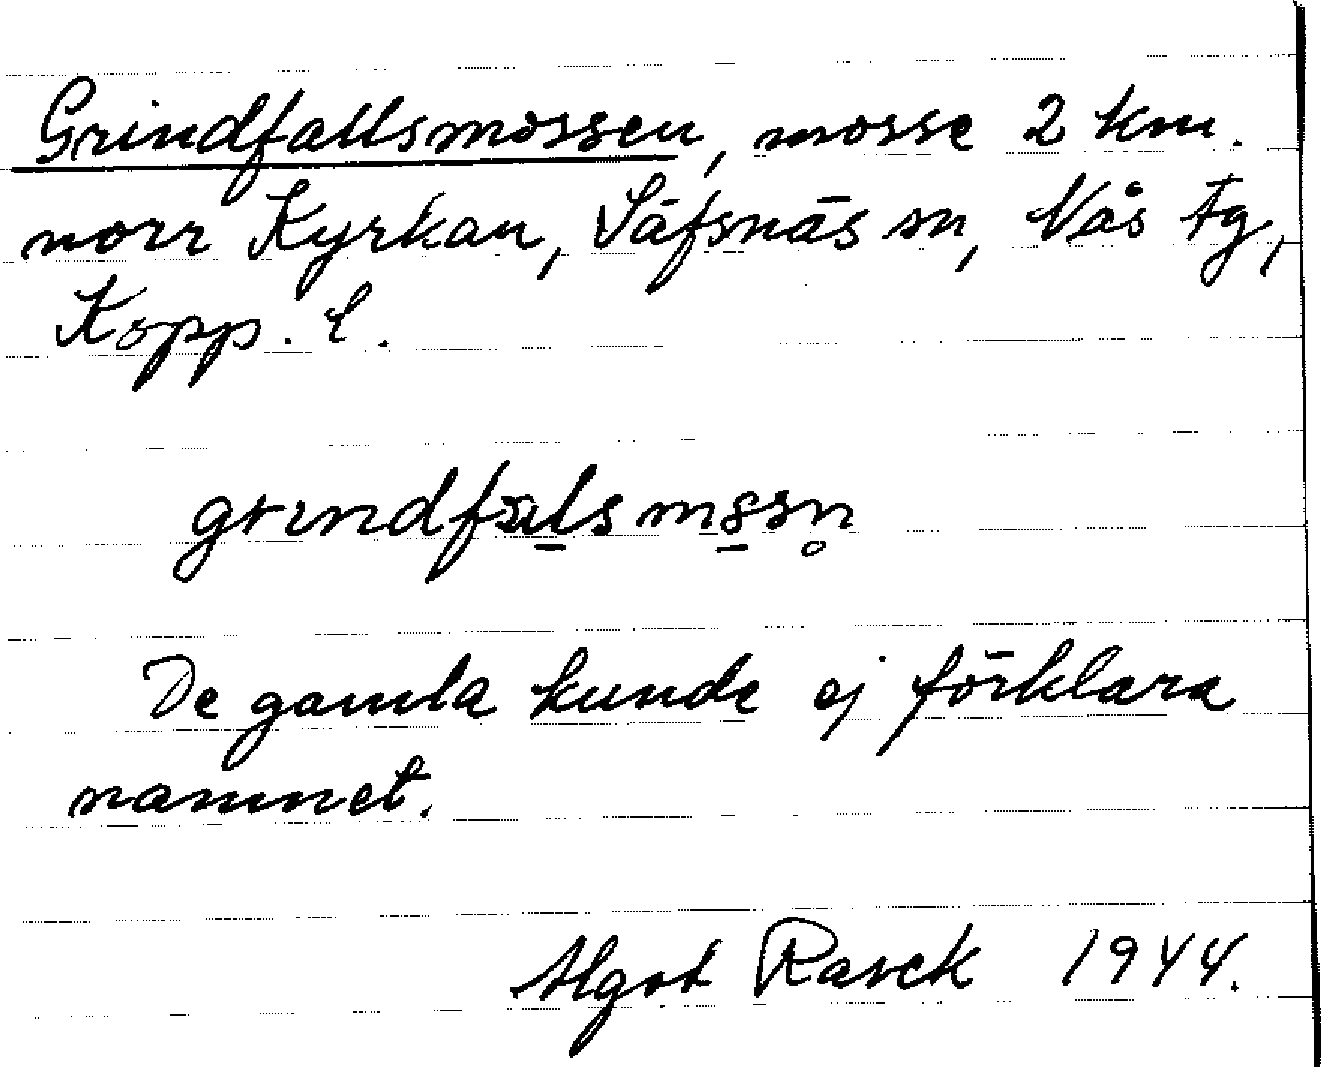 Grindfallsmossen, mosse 2 km.
norr Kyrkan, Säfsnäs sn, Nås tg,
Kopp. l.
De gamla kunde ej förklara
namnet.
Algot Rasck 1944.